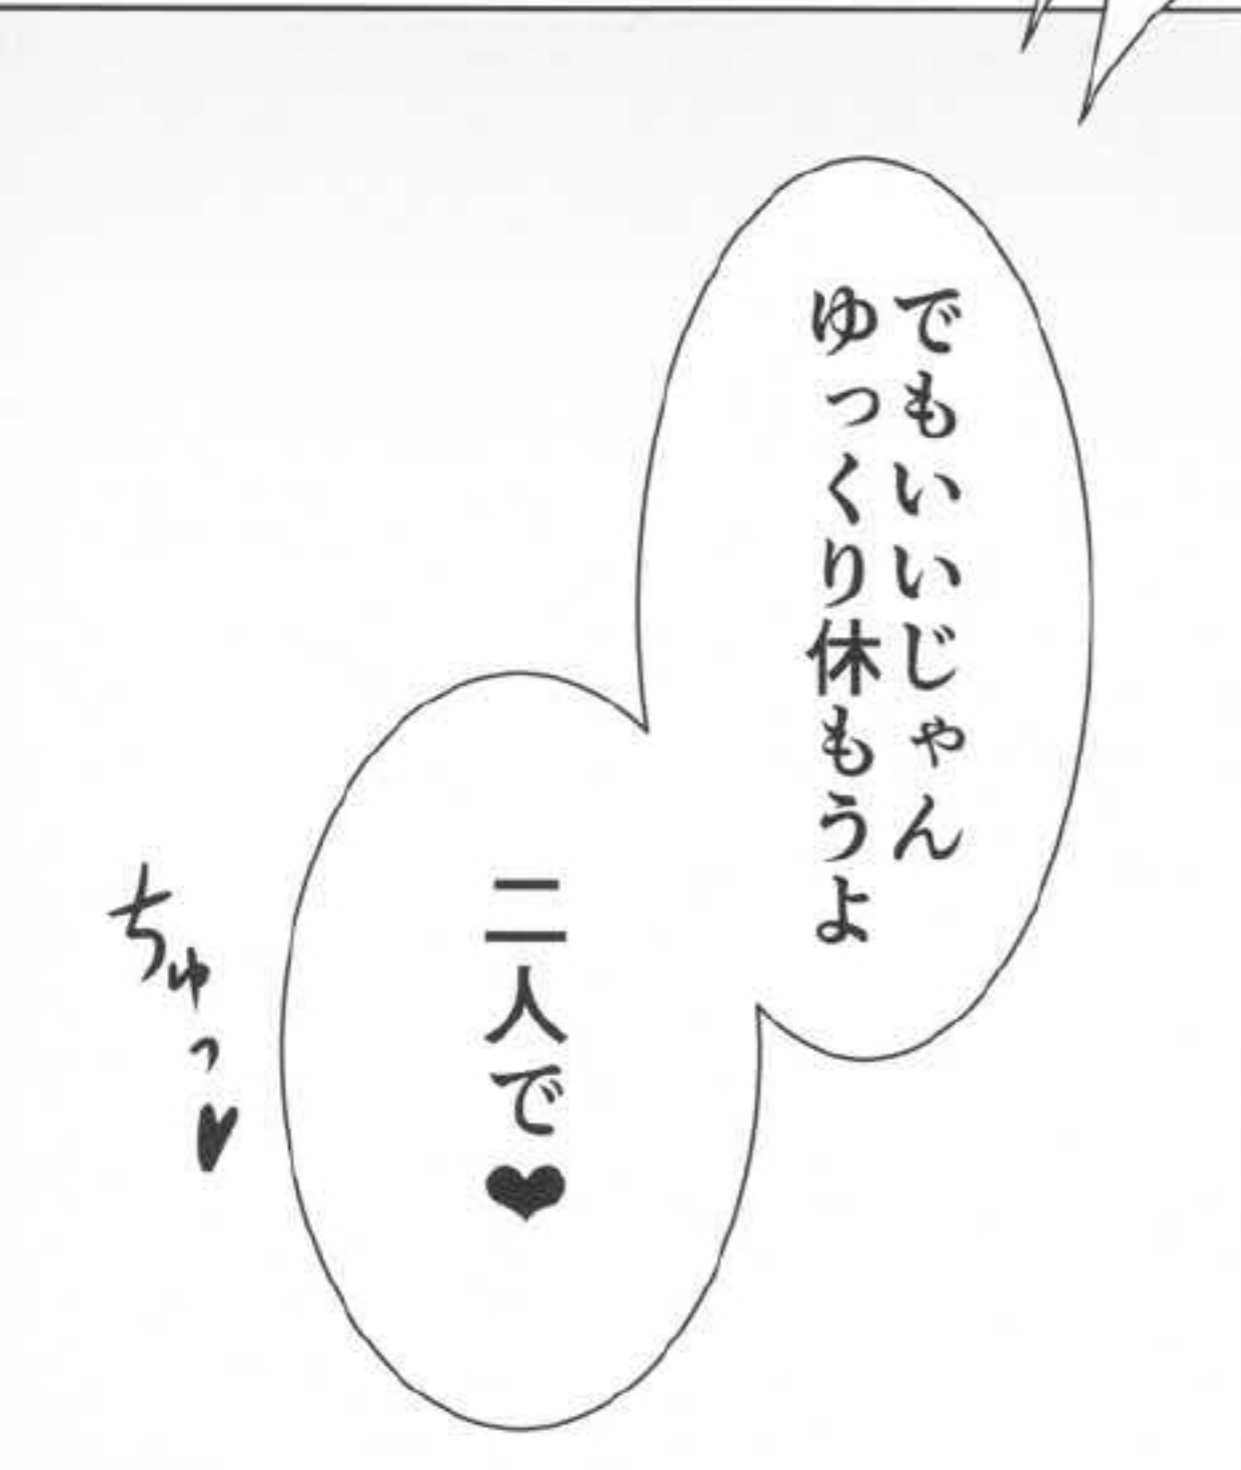 でもいいじゃん
ゆっくり休もうよ
二人で❤
ちゅっ♥